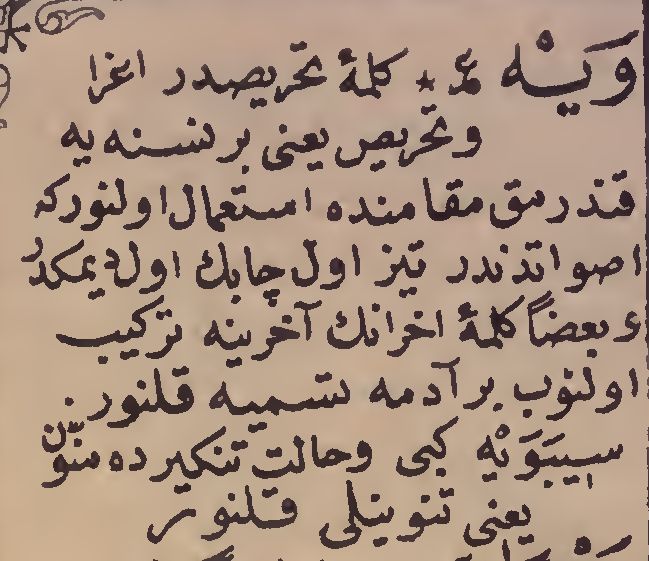 وَيْه ع * كلمۀ تحريصدر اغرا
وتحريص يعنى بر نسنه يه
قندرمق مقامنده استعمال اولنور كه
اصواتدندر تيز اول چابك اول ديمكدر
ع وبعضاً كلمۀ اخرانك آخرينه تركيب
اولنوب بر آدمه تسميه قلنور
سِيبَوَيْه كبى وحالت تنكيرده منوّن
يعنى تنوينلى قلنور